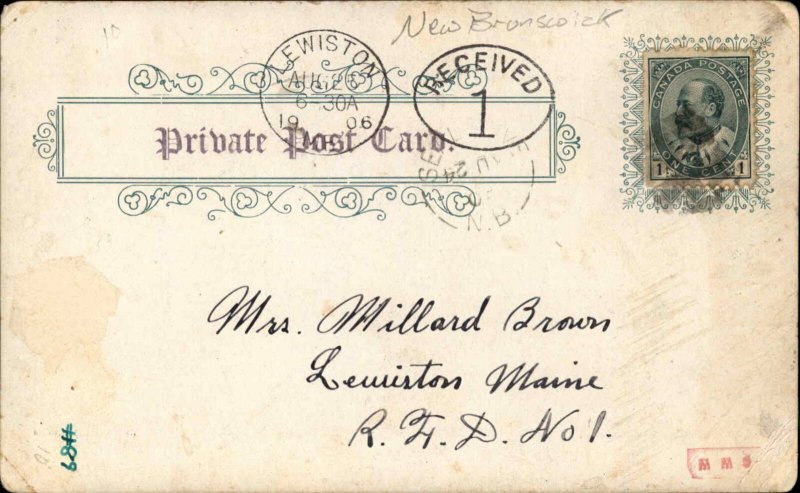 New Brunswick
LEWISTON
AUG 26
6-30A
19 06
ME.
RECEIVED
1
AU 24
N.B.
Private Post Card.
CANADA POSTAGE
ONE CENT
1 1
Mrs. Millard Brown
Lewiston Maine
R. F. D. No 1.
M M S
10